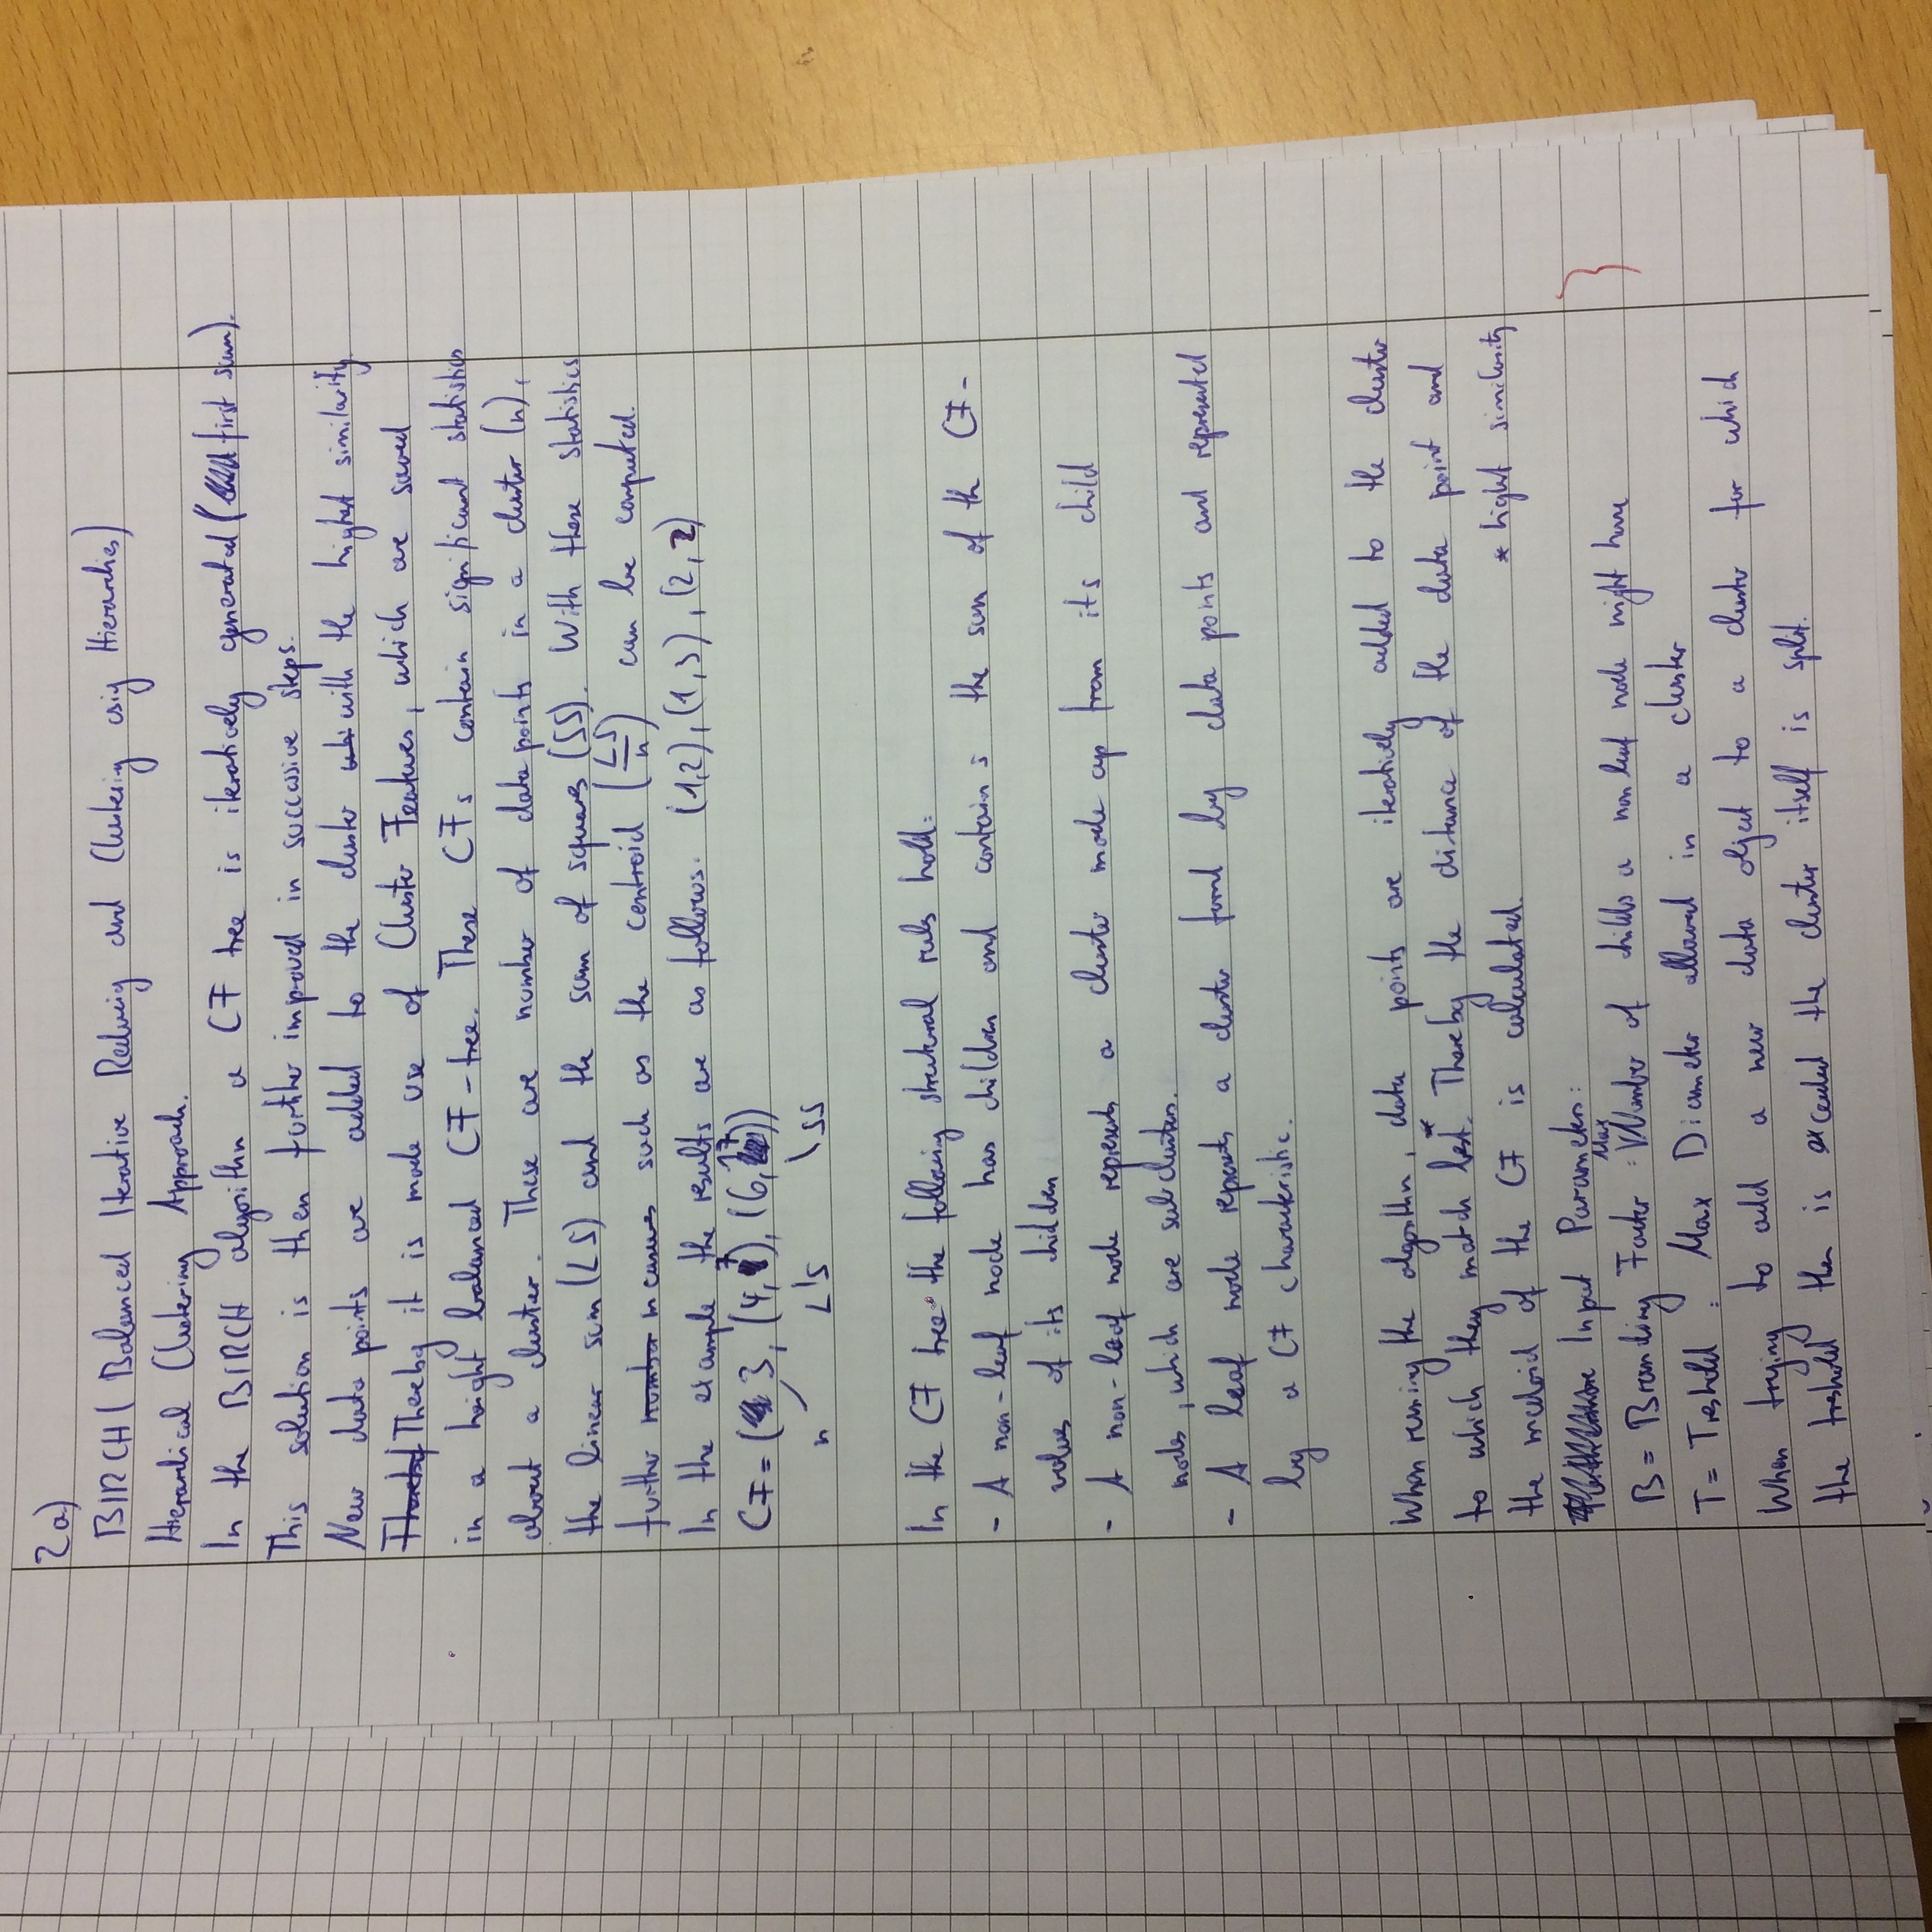 2a)
BIRCH (Balanced Iterative Reducing and Clustering using Hierarchies)
Hierarchical Clustering Approach.
In the BIRCH algorithm a CF tree is iteratively generated (first scan).
This solution is then further improved in successive steps.
New data points are added to the cluster with the highest similarity
Thereby it is made use of Cluster Features, which are saved
in a height balanced CF-tree. These CFs contain significant statistics
about a cluster. These are number of data points in a cluster (n),
the linear sum (LS) and the sum of squares (SS). With these statistics
further measures such as the centroid (LS/n) can be computed.
In the example the results are as follows. (1,2), (1,3), (2,2)
CF = (3, (4,7), (6,17))
n LS SS
In the CF tree the following structural rules hold:
- A non-leaf node has children and contains the sum of th CF-
values of its children
- A non-leaf node represents a cluster made up from its child
nodes, which are subclusters.
- A leaf node represents a cluster formed by data points and represented
by a CF characteristic.
When running the algorithm, data points are iteratively added to the cluster
to which they match best*. Thereby the distance of the data point and
the medoid of the CF is calculated. * highest similarity
Input Parameters:
B = Branching Factor : Max Number of childs a non leaf node might have
T = Treshold : Max Diameter allowed in a cluster
When trying to add a new data object to a cluster for which
the treshold then is exceeded the cluster itself is split.